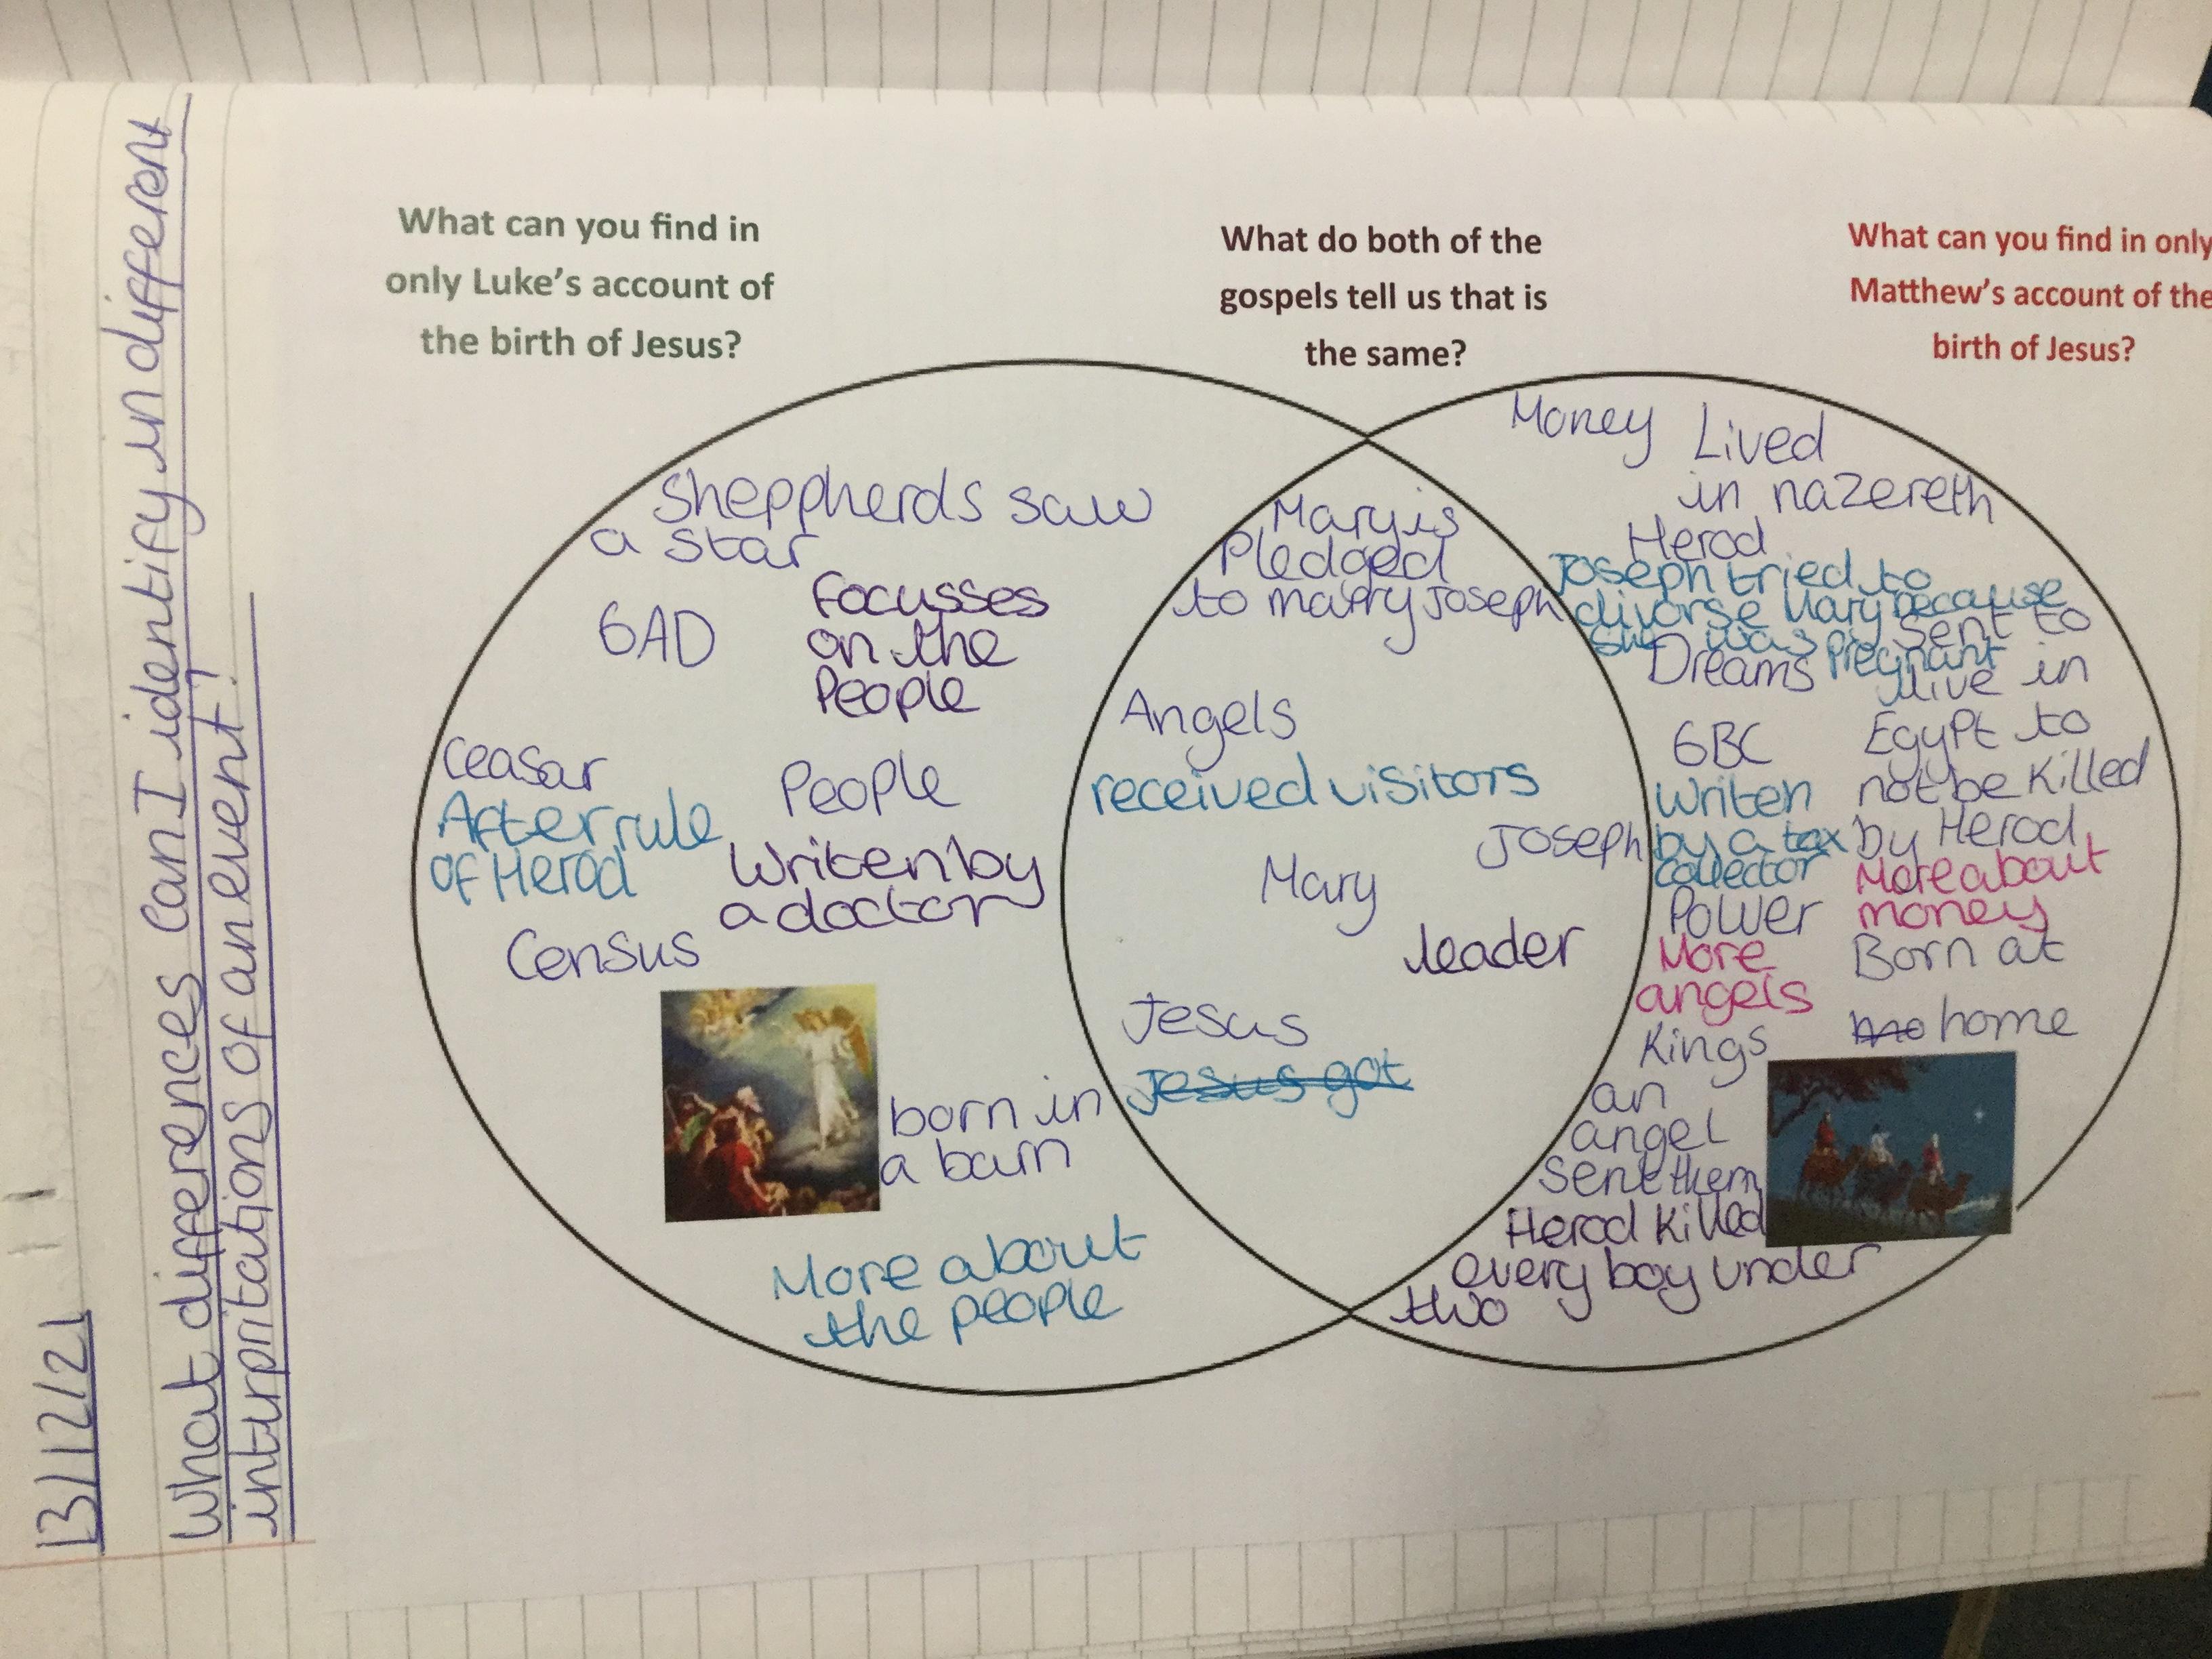 13/12/21
What differences can I identify in different
inturpritations of an event?
What can you find in
only Luke's account of
the birth of Jesus?
What do both of the
gospels tell us that is
the same?
What can you find in only
Matthew's account of the
birth of Jesus?
Sheppherds saw
a star
6AD
focusses
on the
People
Ceasar
After rule
of Herod
People
Writen by
a doctor
Census
born in
a barn
More about
the people
Mary is
Pledged
to marry Joseph
Angels
received visitors
Joseph
Mary
leader
Jesus
Jesus got
Money
Lived
in nazereth
Herod
Joseph tried to
divorse Mary because
she was Pregnant
Dreams
Sent to
live in
Egypt to
not be killed
by Herod
6BC
Writen
by a tax
collector
Power
More about
money
More
angels
Born at
home
Kings
an
angel
sent them
Herod killed
every boy under
two